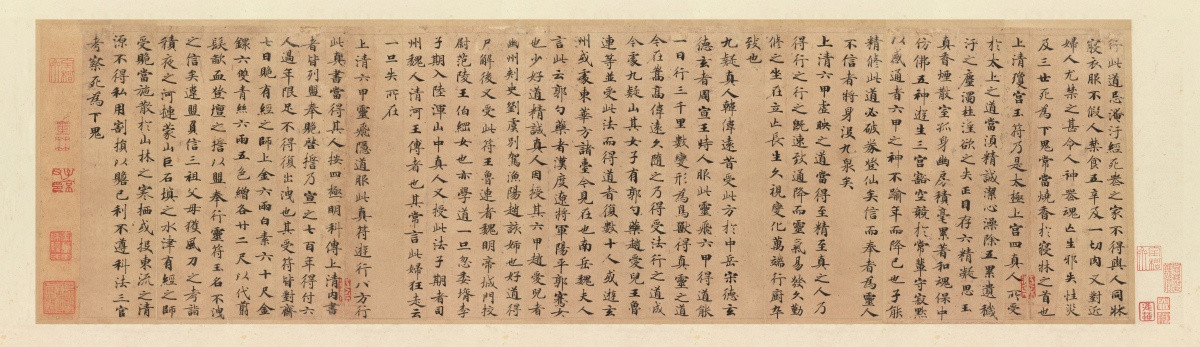 行此道忌淹汙經死喪之家不得與人同牀
寢衣服不假人禁食五辛及一切肉又對近
婦人尤禁之甚令人神喪魂亡生邪失性災
及三世死為下鬼常當燒香於寢牀之首也
上清瓊宮玉符乃是太極上宮四真人所受
於太上之道當須精誠潔心澡除五累遺穢
汙之塵濁杜淫欲之失正目存六精凝思玉
真香煙散室孤身幽房積毫累著和魂保中
仿佛五神遊生三宮豁空競於常輩守寂默
以感通者六甲之神不踰年而降已也子能
精修此道必破券登仙矣信而奉者為靈人
不信者將身沒九泉矣
上清六甲虛映之道當得至精至真之人乃
得行之行之既速致通降而靈氣易發久勤
修之坐在立亡長生久視變化萬端行廚卒
致也
九疑真人韓偉遠昔受此方於中岳宋德玄
德玄者周宣王時人服此靈飛六甲得道能
一日行三千里數變形為鳥獸得真靈之道
今在嵩高偉遠久隨之乃得受法行之道成
今處九疑山其女子有郭勺藥趙愛兒王魯
連等並受此法而得道者復數十人或遊玄
州或處東華方諸臺今見在也南岳魏夫人
言此云郭勺藥者漢度遼將軍陽平郭騫女
也少好道精誠真人因授其六甲趙愛兒者
幽州刺史劉虞別駕漁陽趙該姊也好道得
尸解後又受此符王魯連者魏明帝城門校
尉范陵王伯綱女也亦學道一旦忽委壻李
子期入陸渾山中真人又授此法子期者司
州魏人清河王傳者也其常言此婦狂走云
一旦失所在
上清六甲靈飛隱道服此真符遊行八方行
此真書當得其人按四極明科傳上清內書
者皆列盟奉貺啓誓乃宣之七百年得付六
人過年限足不得復出洩也其受符皆對齋
七日貺有經之師上金六兩白素六十尺金
鐶六雙青絲六兩五色繒各廿二尺以代翦
髮歃血登壇之誓以盟奉行靈符玉名不洩
之信矣違盟負信三祖父母獲風刀之考詣
積夜之河揵蒙山巨石填之水津有經之師
受貺當施散於山林之寒栖或投東流之清
源不得私用割損以贍己利不遵科法三官
考察死為下鬼